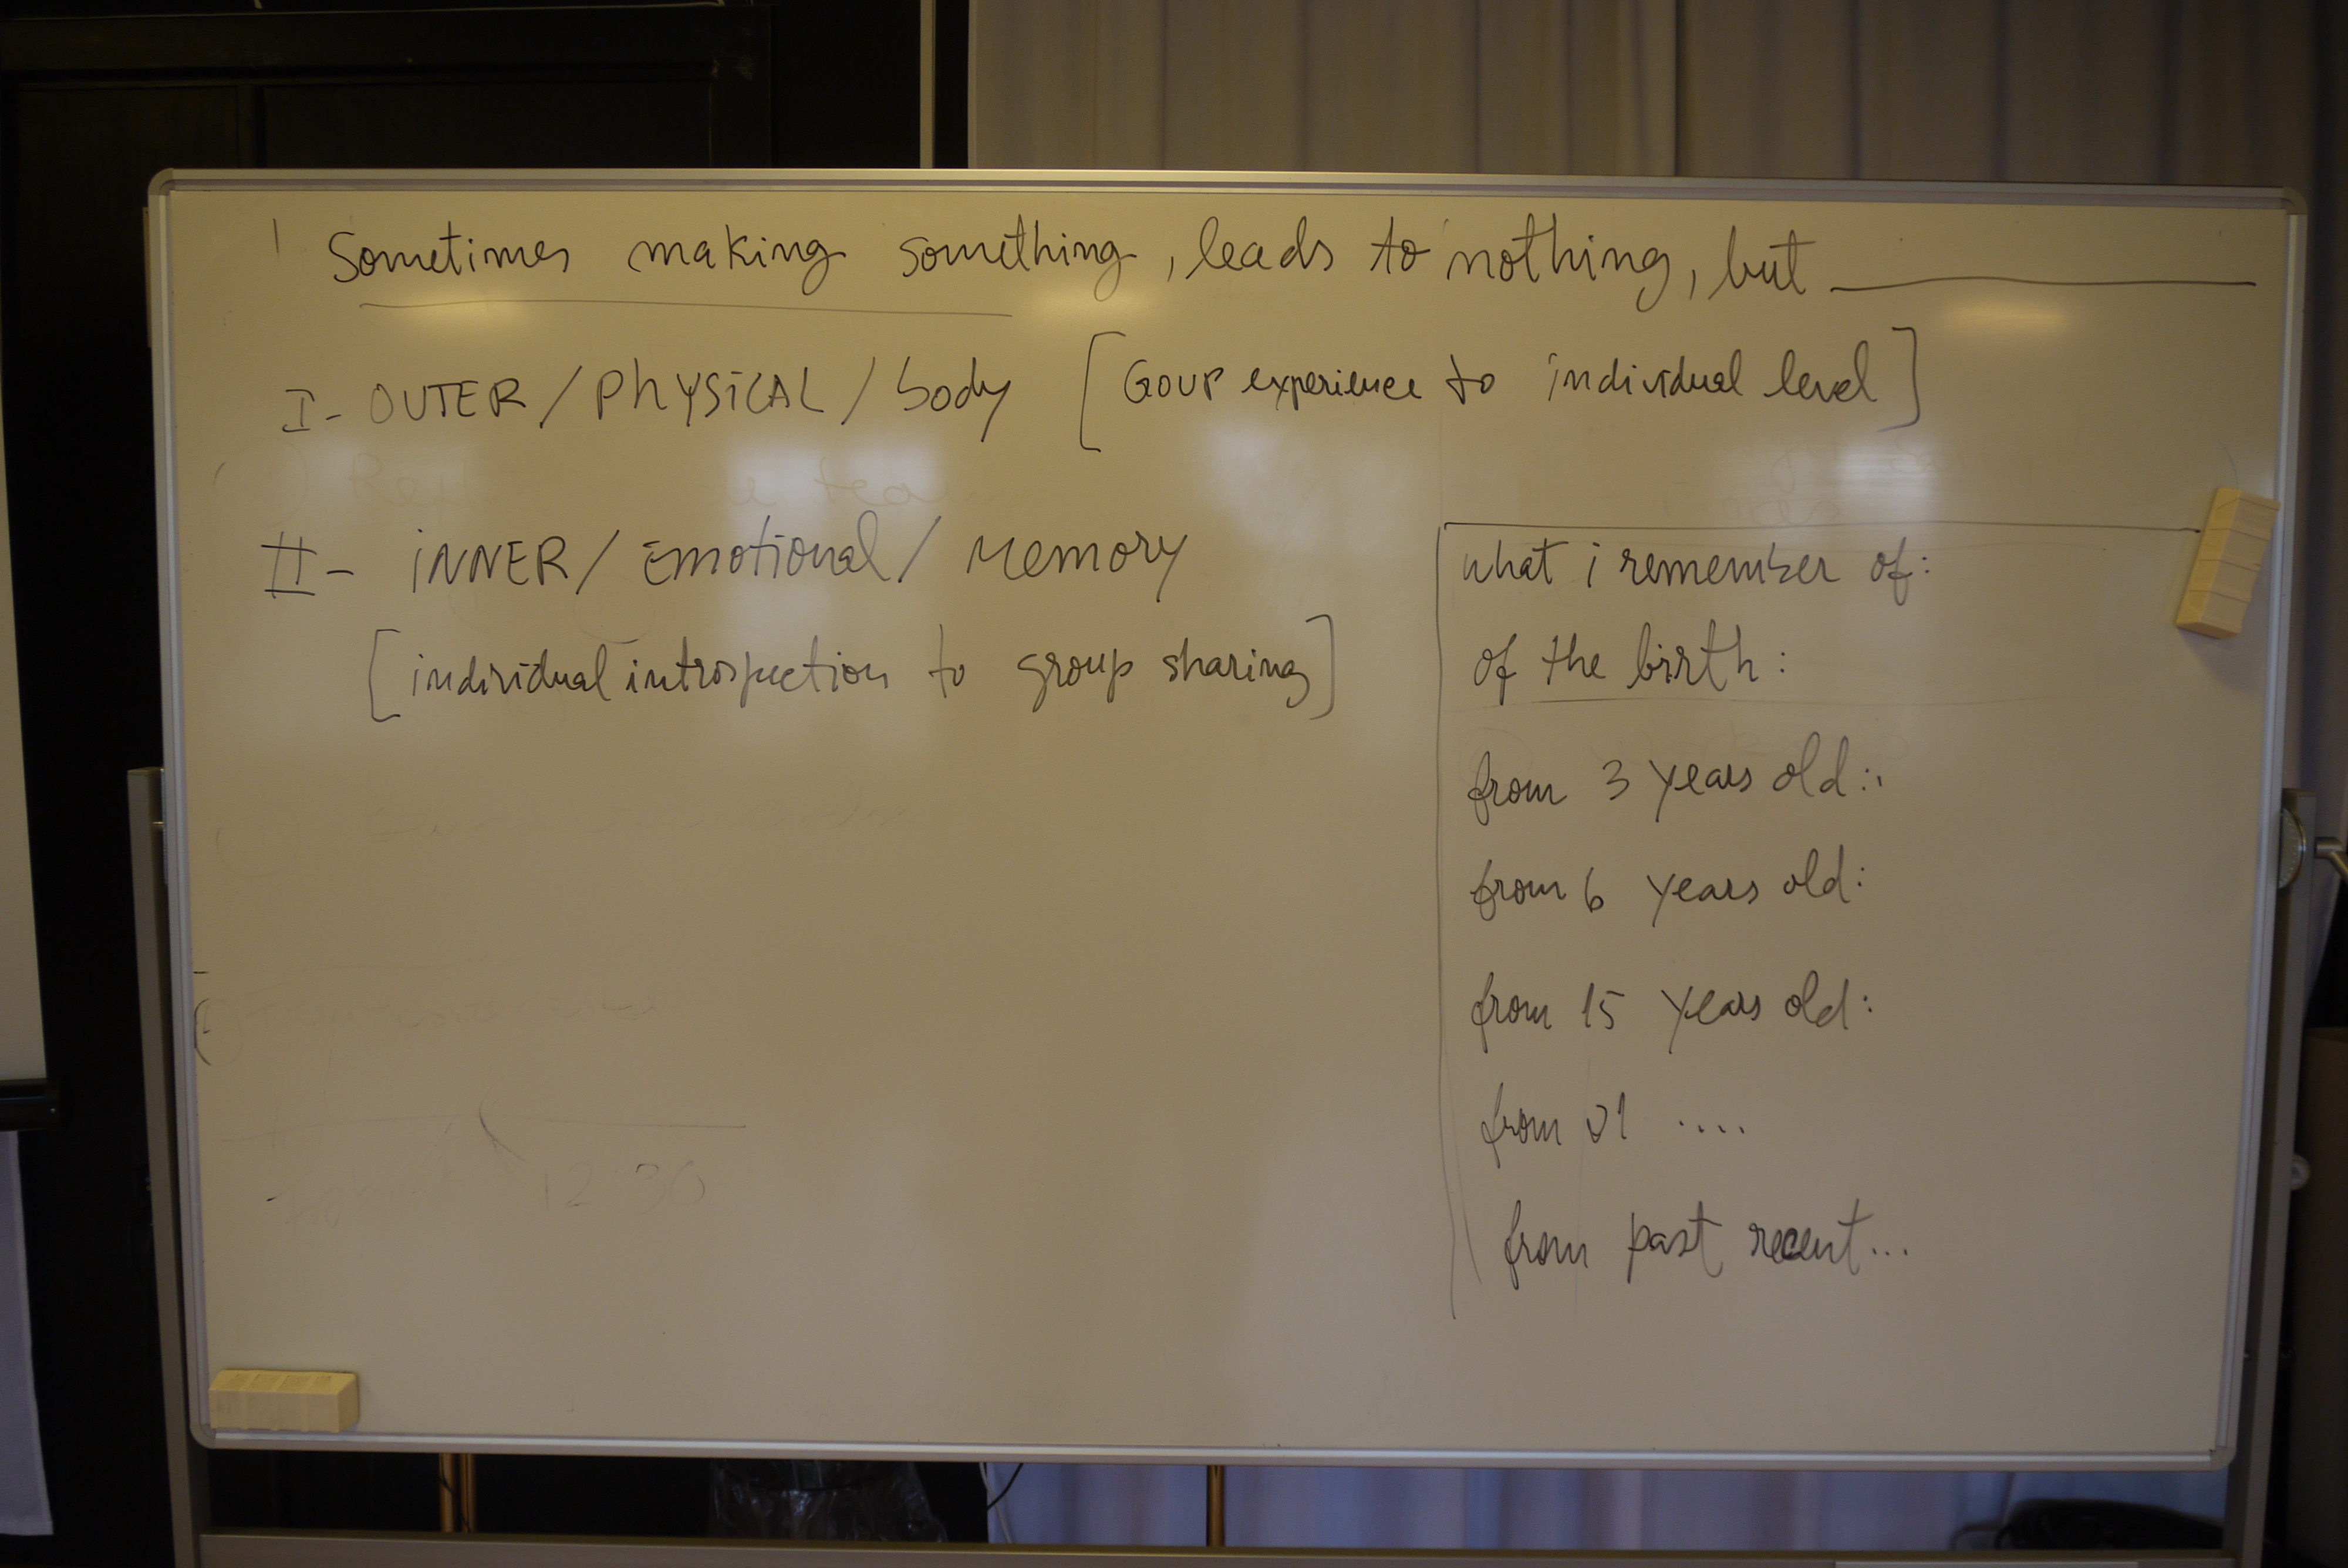 Sometimes making something, leads to nothing, but ___________
I- OUTER / PHYSICAL / body [GOUP experience to individual level]
II- INNER / Emotional / Memory
[individual introspection to group sharing]
what i remember of:
of the birth:
from 3 years old:
from 6 years old:
from 15 years old:
from 21 ....
from past recent...
12:30